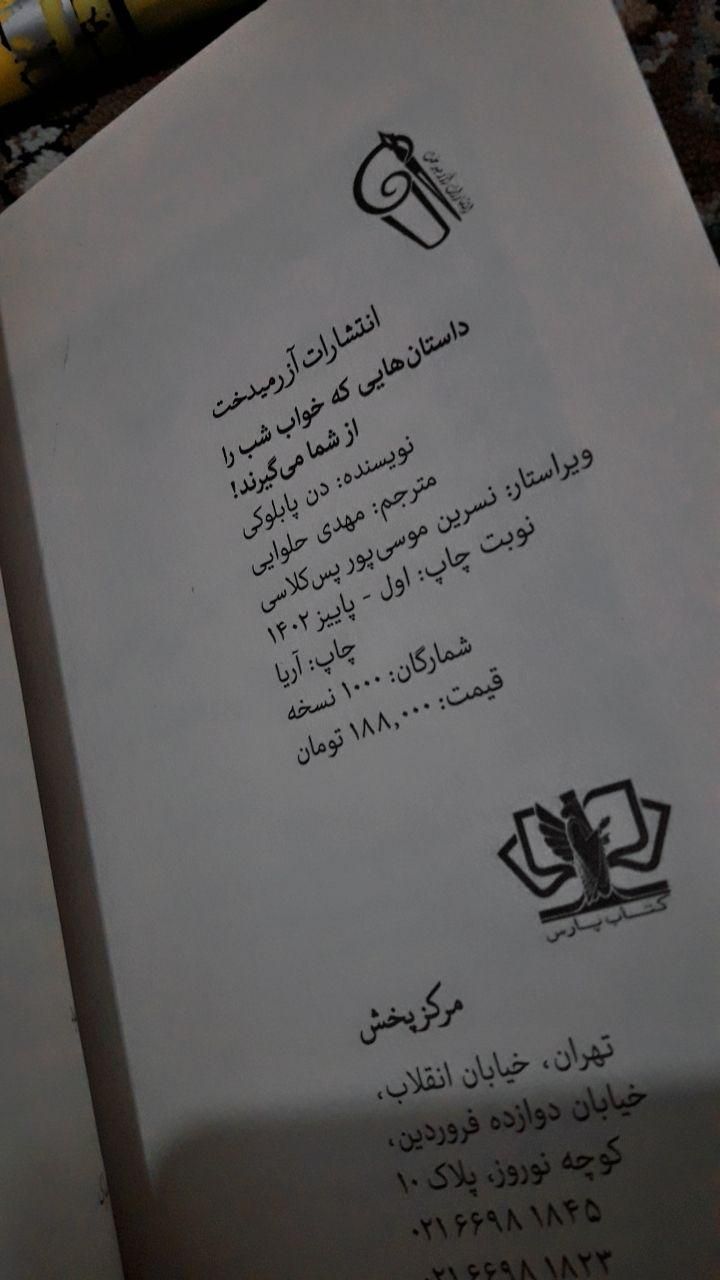 انتشارات آزرمیدخت
داستان‌هایی که خواب شب را
از شما می‌گیرند!
نویسنده: دن پابلوکی
مترجم: مهدی حلوایی
ویراستار: نسرین موسی‌پور پس‌کلاسی
نوبت چاپ: اول - پاییز ۱۴۰۲
چاپ: آریا
شمارگان: ۱۰۰۰ نسخه
قیمت: ۱۸۸,۰۰۰ تومان
کتاب پارس
مرکز پخش
تهران، خیابان انقلاب،
خیابان دوازده فروردین،
کوچه نوروز، پلاک ۱۰
۰۲۱ ۶۶۹۸ ۱۸۴۵
۰۲۱ ۶۶۹۸ ۱۸۲۳